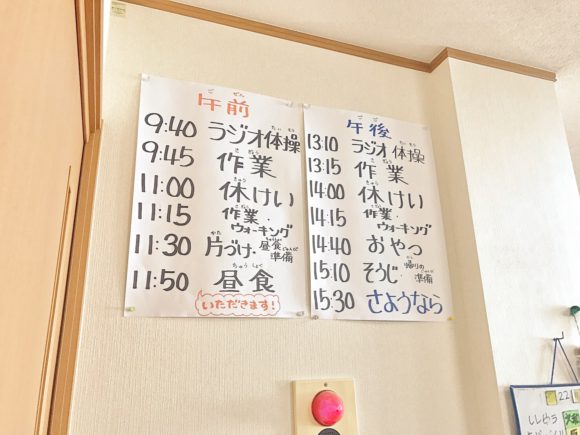 午前
9:40 ラジオ体操
9:45 作業
11:00 休けい
11:15 作業・
ウォーキング
11:30 片づけ・昼食準備
11:50 昼食
いただきます!
午後
13:10 ラジオ体操
13:15 作業
14:00 休けい
14:15 作業・
ウォーキング
14:40 おやつ
15:10 そうじ・帰りの準備
15:30 さようなら
22